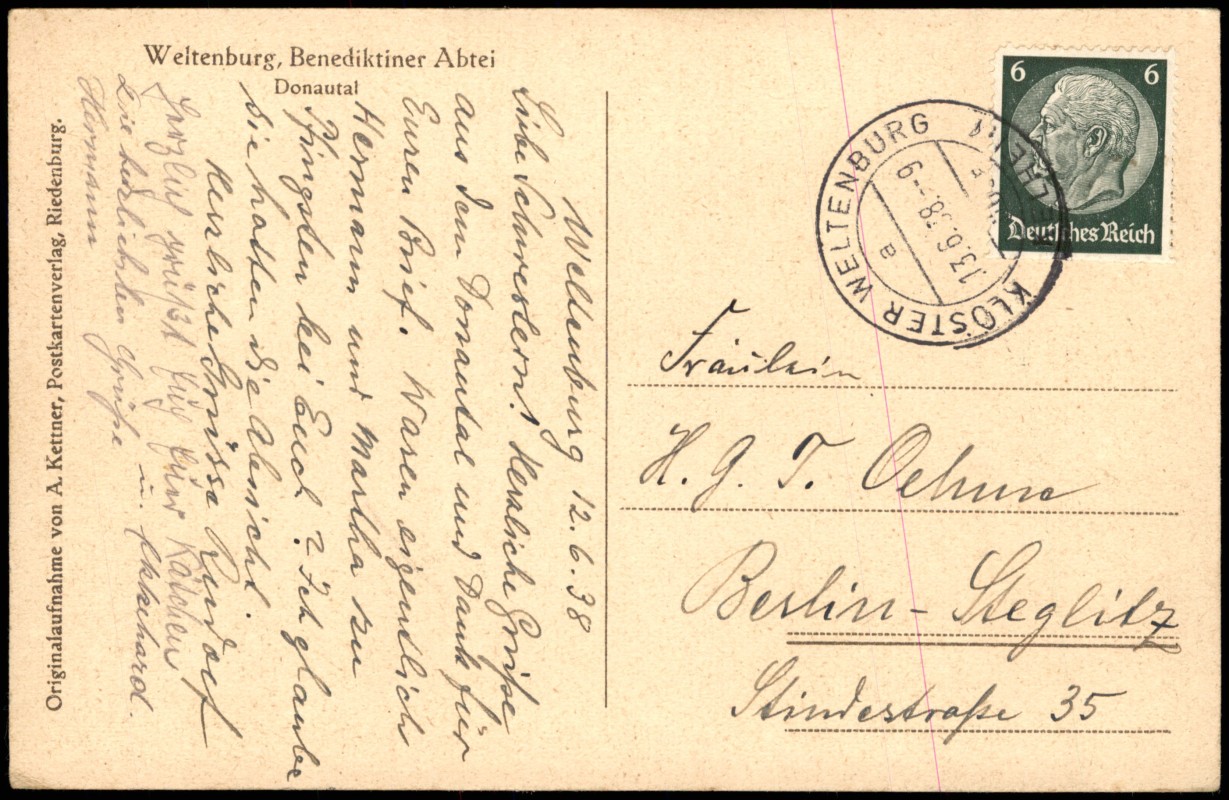 Weltenburg, Benediktiner Abtei
Donautal
Originalaufnahme von A. Kettner, Postkartenverlag, Riedenburg.
Weltenburg 12.6.38
Liebe Schwestern! Herzliche Grüße
aus dem Donautal und Dank für
Euren Brief. Waren eigentlich
Hermann und Martha zu
Pfingsten bei Euch? Ich glaube
sie hatten die Absicht.
Herzliche Grüsse Rudolf
Herzlich grüßt Euch Eure Kätchen
Die herzlichsten Grüße u. Ekkehard.
Hermann
6 6
Deutsches Reich
KLOSTER WELTENBURG
13.6.38.-9
a
Fräulein
H. G. T. Oehme
Berlin-Steglitz
Stindestraße 35